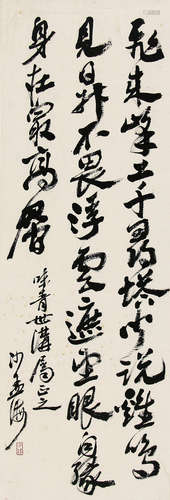 飛來峰上千尋塔聞說雞鳴
見日昇不畏浮雲遮望眼自緣
身在最高層
味青世講屬正之
沙孟海